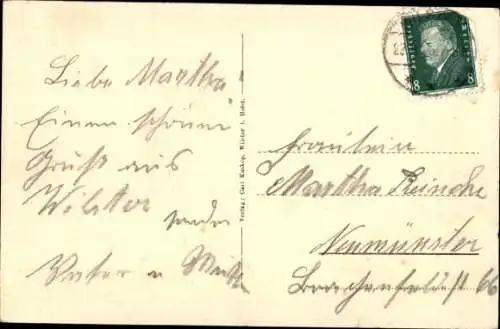 Liebe Martha
Einen schönen
Gruß aus
Wilster
senden
Vater u Mutter
Verlag: Carl Kuskop, Wilster i. Holst.
Deutsches Reich
8 8
Fräulein
Martha Reincke
Neumünster
66